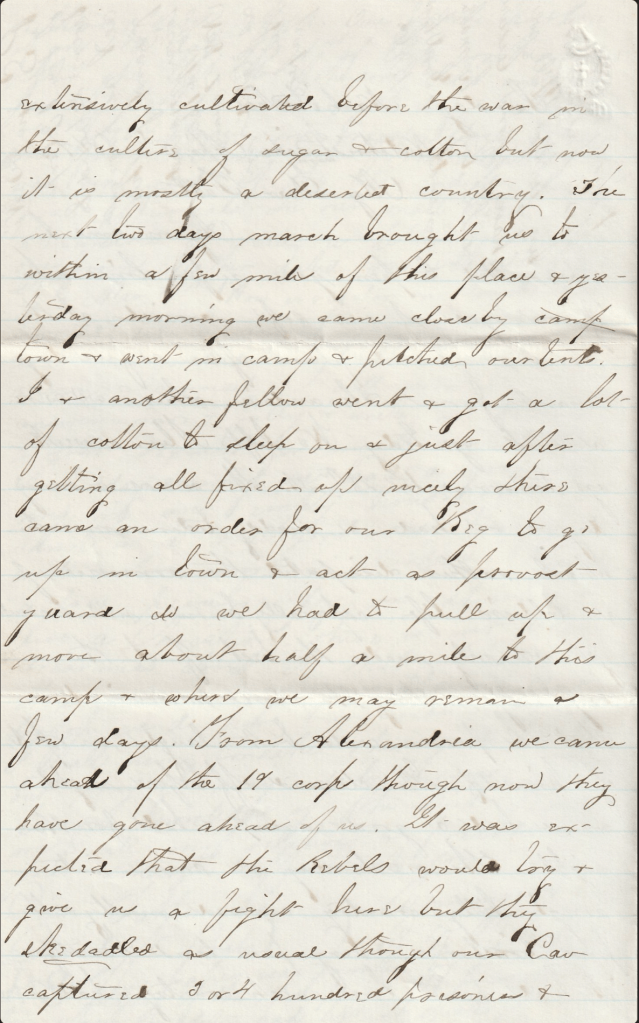 extensively cultivated before the war in
the culture of sugar & cotton but now
it is mostly a deserted country. The
next two days march brought us to
within a few mile of this place & yes-
terday morning we came close by camp
town & went in camp & pitched our tents.
I & another fellow went & got a lot
of cotton to sleep on & just after
getting all fixed up nicely there
came an order for our Reg to go
up in town & act as provost
guard so we had to pull up &
move about half a mile to this
camp & where we may remain a
few days. From Alexandria we came
ahead of the 19 corp though now they
have gone ahead of us. It was ex-
pected that the Rebels would try &
give us a fight here but they
skedadled as usual though our Cav
captured 3 or 4 hundred prisoners &